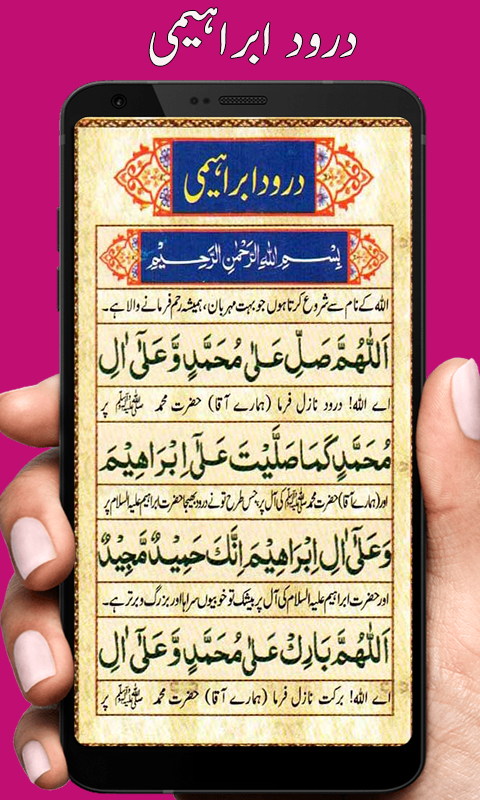 درود ابراہیمی
درود ابراہیمی
بِسْمِ اللهِ الرَّحْمٰنِ الرَّحِيْمِ
اللہ کے نام سے شروع کرتا ہوں جو بہت مہربان، ہمیشہ رحم فرمانے والا ہے۔
اَللّٰهُمَّ صَلِّ عَلٰى مُحَمَّدٍ وَّعَلٰٓى اٰلِ
اے اللہ! درود نازل فرما (ہمارے آقا) حضرت محمد ﷺ پر
مُحَمَّدٍ كَمَا صَلَّيْتَ عَلٰٓى اِبْرَاهِيْمَ
اور (ہمارے آقا) حضرت محمد ﷺ کی آل پر جس طرح تو نے درود بھیجا حضرت ابراہیم علیہ السلام پر
وَعَلٰٓى اٰلِ اِبْرَاهِيْمَ اِنَّكَ حَمِيْدٌ مَّجِيْدٌ
اور حضرت ابراہیم علیہ السلام کی آل پر بیشک تو خوبیوں سراہا اور بزرگ و برتر ہے۔
اَللّٰهُمَّ بَارِكْ عَلٰى مُحَمَّدٍ وَّعَلٰٓى اٰلِ
اے اللہ! برکت نازل فرما (ہمارے آقا) حضرت محمد ﷺ پر